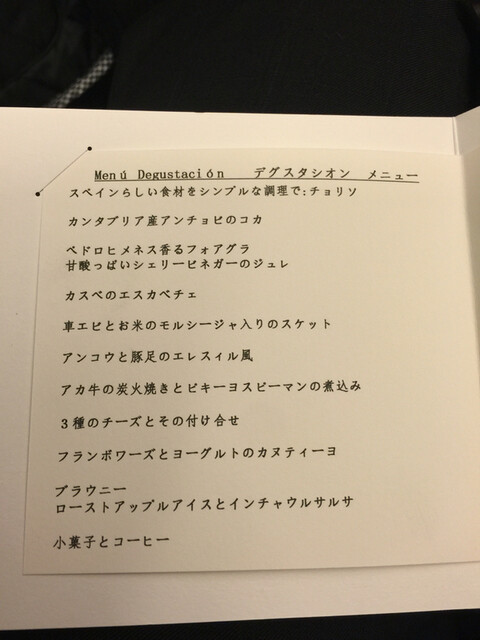 Menú Degustación デグスタシオン メニュー
スペインらしい食材をシンプルな調理で:チョリソ
カンタブリア産アンチョビのコカ
ペドロヒメネス香るフォアグラ
甘酸っぱいシェリービネガーのジュレ
カスベのエスカベチェ
車エビとお米のモルシージャ入りのスケット
アンコウと豚足のエレスィル風
アカ牛の炭火焼きとピキーヨスピーマンの煮込み
3種のチーズとその付け合せ
フランボワーズとヨーグルトのカヌティーヨ
ブラウニー
ローストアップルアイスとインチャウルサルサ
小菓子とコーヒー